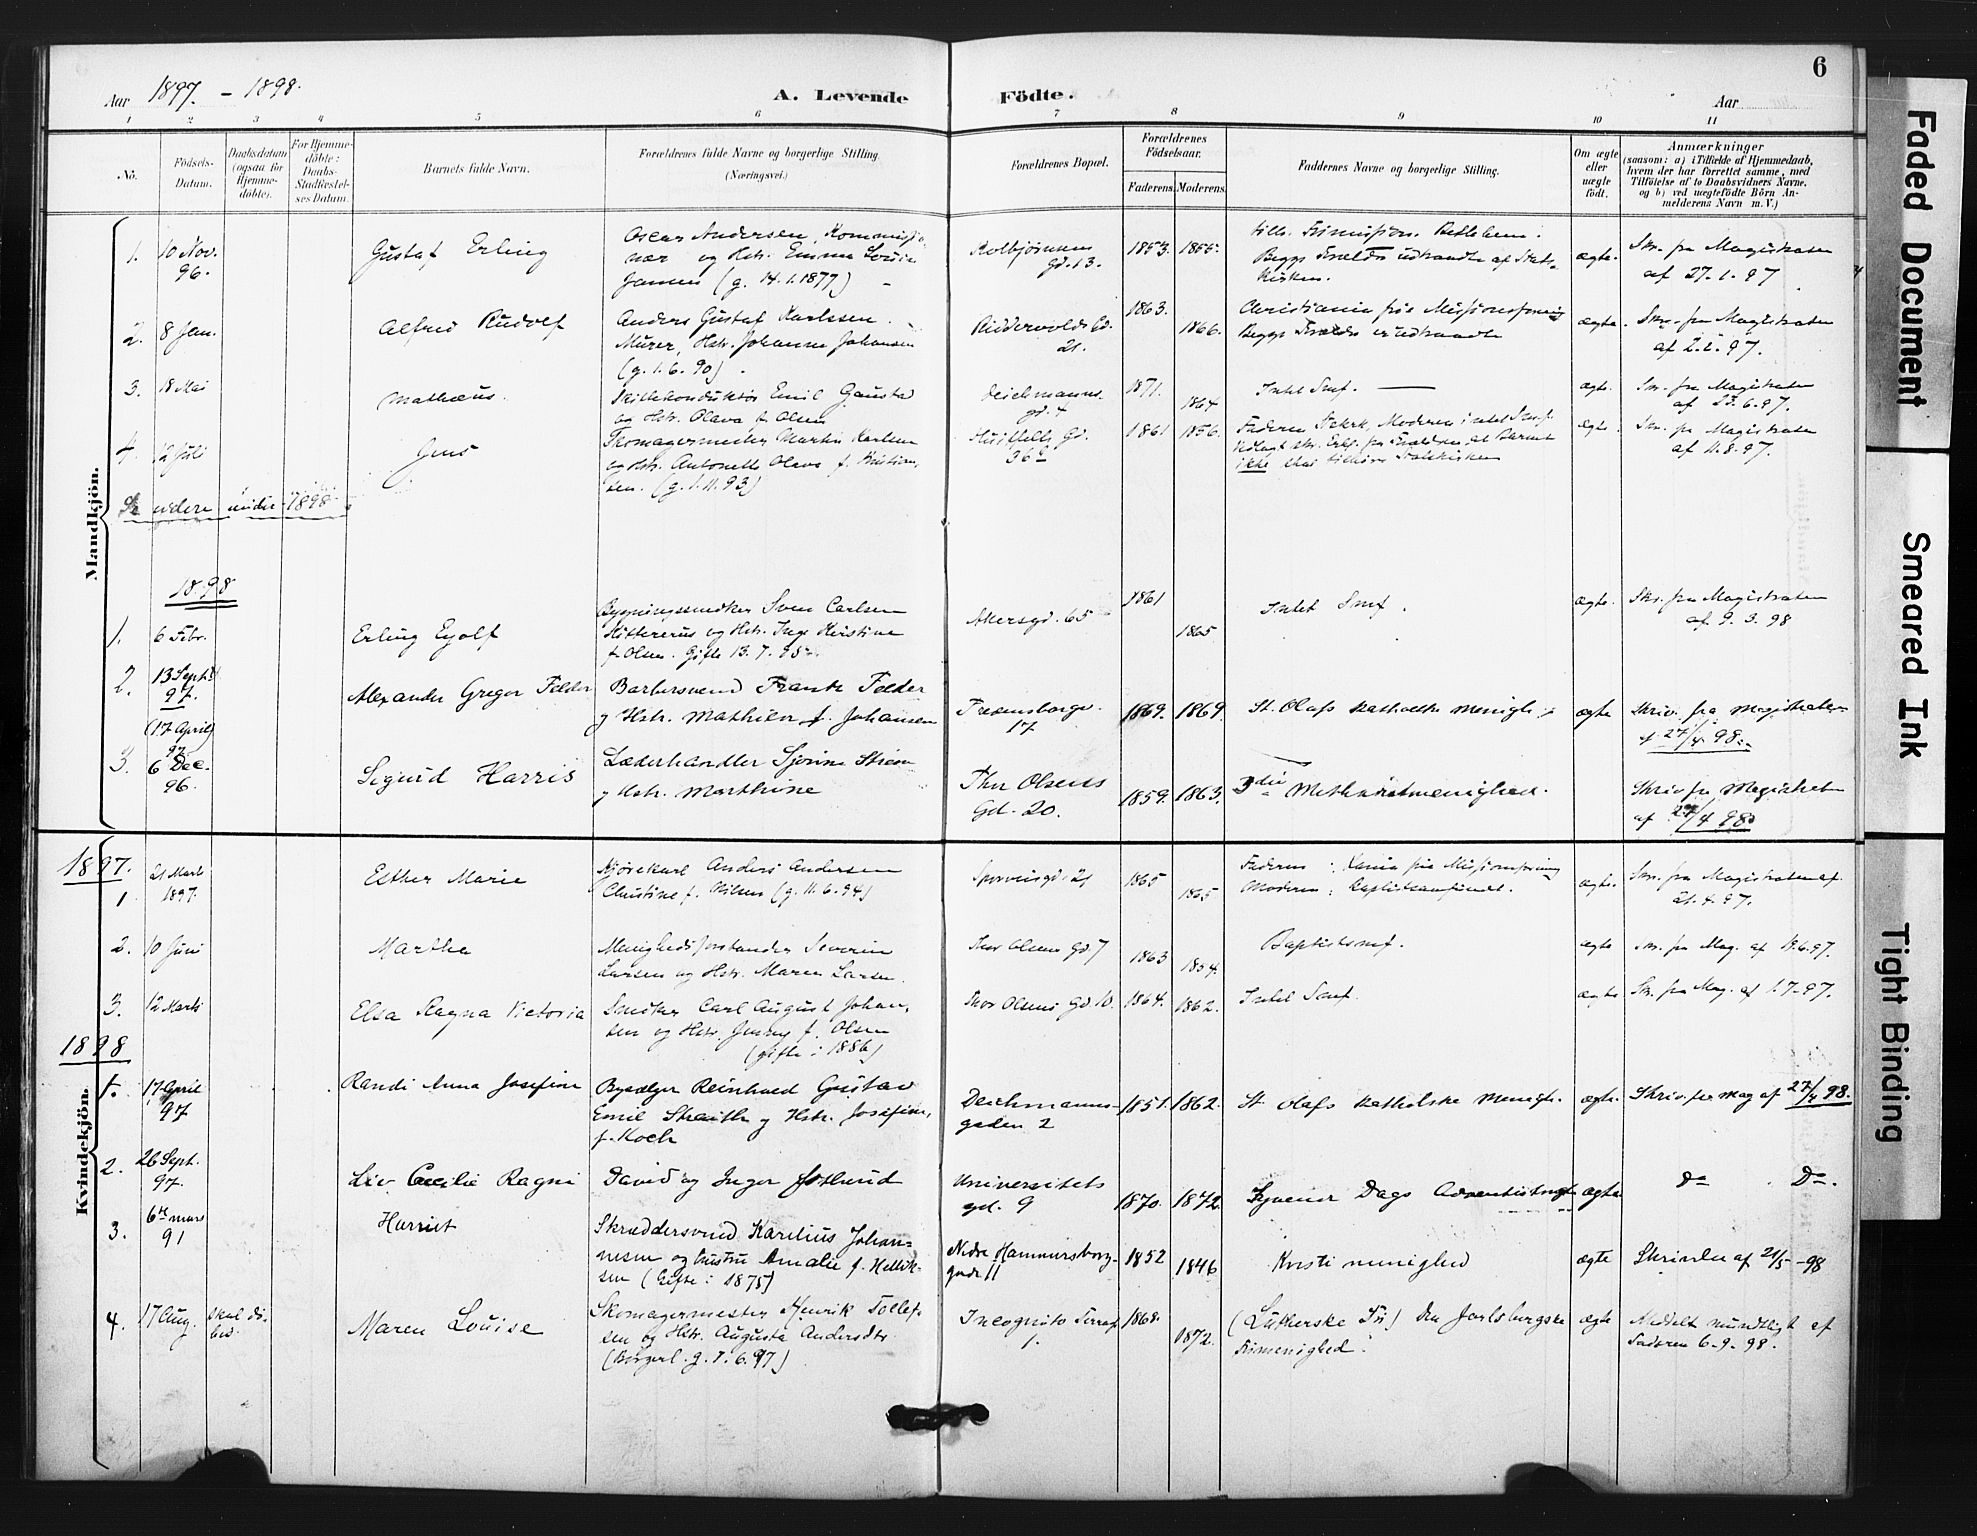 Aar 1897. - 1898.
A. Levende Födte.
Aar
6
1 2 3 4 5 6 7 8 9 10 11
No.
Födsels-Datum.
Daabsdatum (ogsaa for Hjemme-döbte).
For Hjemme-döbte: Daabs-Stadfæstel-ses Datum.
Barnets fulde Navn.
Forældrenes fulde Navne og borgerlige Stilling. (Næringsvei.)
Forældrenes Bopæl.
Forældrenes Födselsaar.
Faderens. Moderens.
Faddernes Navne og borgerlige Stilling.
Om ægte eller uægte födt.
Anmærkninger
(saasom: a) i Tilfælde af Hjemmedaab,
hvem der har forrettet samme, med
Tilföielse af to Daabsvidners Navne.
og b) ved uægtefödte Börn An-
melderens Navn m. V.)
Mandkjön.
1. 10 Nov. 96. Gustaf Erling
Oscar Andersen, Kommisjo-
nær og Hstr. Emma Lovise
Jansen (g. 14.1.1877)
Kolbjørnsens Gd. 13.
1853. 1855.
Begge Forældre udtraadte af Stats-
kirken.
ægte.
Skr. fra Magistraten
af 27-1-97
2. 8 Jan. Alfred Rudolf
Anders Gustaf Karlsen
Murer, Hstr. Johanne Johansen
(g. 1.6.90)
Riddervolds Gd. 21.
1863. 1866.
Christiania frie Missionsforening
Begge Forældre er udtraadte
ægte.
Skr. fra Magistraten
af 2.2.97.
3. 18 Mai Mathæus.
Emil Gaustad
og Hstr. Olava f. Olsen
Deichmanns gd. 4
1871. 1864
Intet Smf.
ægte.
Skr. fra Magistraten
af 23.6.97.
4. 12 Juli Jens
Skomagermester Martin Karlsen
og Hstr. Antonette Olava f. Kristian-
sen. (g. 1.11.93)
Huitfelts Gd. 36
1861 1856.
Faderen Statsk, Moderen i intet Smf.
Vedlagt skr. Erkl. fra Forældrene at Barnet
ikke skal tilhøre Statskirken
ægte.
Skr. fra Magistraten
af 11.8.97.
Se videre under 1898
1898
1. 6 Febr. Erling Eyolf
Bygningssnedker Sven Carlsen
og Hstr. Inga Kristine
f. Olsen. Gifte 13.7.95.
Akersgd. 65
1861 1865
Intet Smf.
ægte.
Skr. fra Magistraten
af 9.3.98
2. 13 Sept. 97. Alexander Gregor Felder
Barbersvend Frantz Felder
og Hstr. Mathilde f. Johansen
Fredensborgv. 17
1869. 1869.
St. Olafs katholske Menigh.
ægte
Skriv. fra Magistraten
af 27/4 98.
(17 April) 97
3. 6 Dec. 96. Sigurd Harris
Læderhandler
og Hstr. Marthine
Thv. Olsens Gd. 20.
1859. 1863.
3die Methodistmenighed.
Skriv. fra Magistraten
af 27/4 98
Kvindekjön.
1897.
1 21 Marts 1897. Esther Marie
Kjørekarl Anders Andersen
Christine f. Nilsen (g. 11.6.94)
Sporveisgd. 21
1865 1865
Faderen: Xania frie Missionsforening
Moderen: Baptistsamfundet.
ægte.
Skr. fra Magistraten af
21.4.97.
2. 10 Juni Martha
Menighedsforstander Severin
Larsen og Hstr. Maren Larsen.
Thor Olsens Gd 7
1863 1854.
Baptistsmf.
ægte
Skr. fra Mag. af 19.6.97.
3. 12 Marts Elsa Ragna Victoria
Snedker Carl August Johan-
sen og Hstr. Jenny f. Olsen
(gifte i 1886)
Thor Olsens Gd 10.
1864. 1862.
Intet Smf.
ægte
Skr. fra Mag. af 1.7-97.
1898
1. 17 April 97 Randi Anna Josefine
Bysælger Reinhard Gustav
Emil Strauth og Hstr. Josefine,
f. Koch
Deichmanns-
gaden 2
1851. 1862.
St. Olafs katholske Menigh.
ægte.
Skriv. fra Mag af 27/4 98.
2. 26 Sept. 97. Liv Cecilie Ragni
David og Inger Østlund
Universitets
gd. 9
1870. 1872.
Syvende Dags Adventistmgh
ægte
Do. Do.
3. 6te mars 91 Harriet
Skræddersvend Karelius Johan-
nesen og hustru Amalie f. Hellik-
sen (Gifte i 1875)
Nedre Hammersborg-
gade 11
1852 1846
Kristi menighed
ægte
Skrivelse af 21/5 -98
4. 17 Aug. skal dø-bes. Maren Louise
Skomagermester Henrik Tollef-
sen og Hstr. Augusta Andersdtr.
(Borgerl. g. 7.6.97)
Incognito Terrasse
1.
1868. 1872.
(Lutherske Fri) Den Jarlsbergske
Frimenighed.
ægte
Meddelt mundtligt af
Faderen 6-9-98.
Faded Document
Smeared Ink
Tight Binding